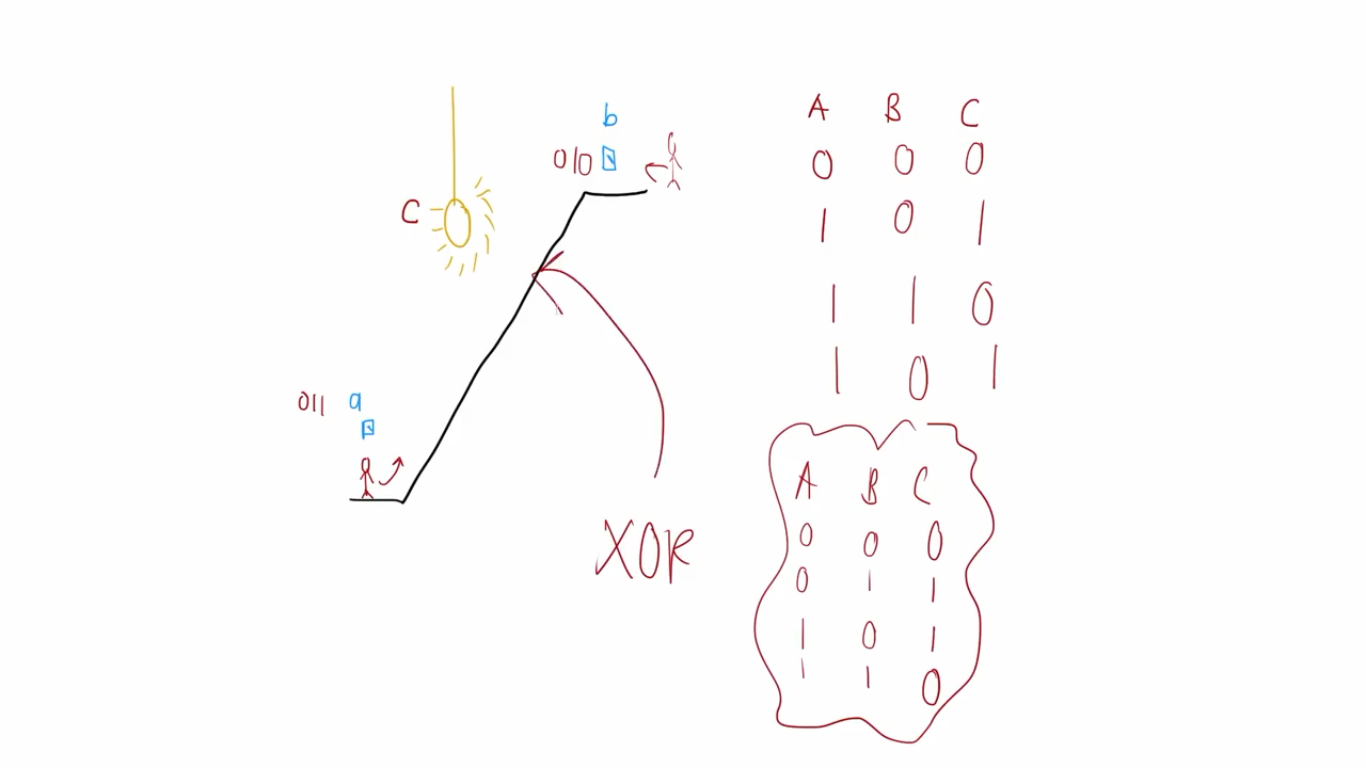 b
010
C
011 a
XOR
A B C
0 0 0
1 0 1
1 1 0
1 0 1
A B C
0 0 0
0 1 1
1 0 1
1 1 0